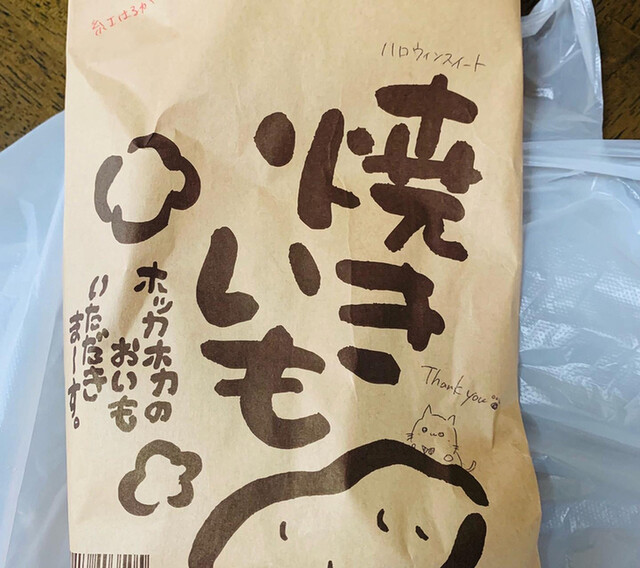 紅はるか
ハロウィンスイート
焼き
いも
ホッカホカの
おいも
いただき
まーす。
Thank you